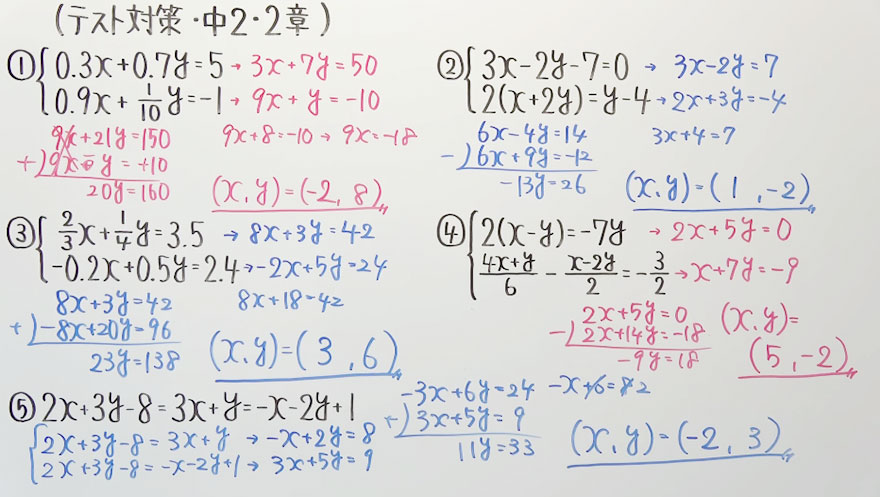 (テスト対策・中2・2章)
① { 0.3x+0.7y=5 → 3x+7y=50
0.9x+1/10y=-1 → 9x+y=-10
9x+21y=150 9x+8=-10 → 9x=-18
+) 9x-y=+10
20y=160 (x,y)=(-2,8)
② { 3x-2y-7=0 → 3x-2y=7
2(x+2y)=y-4 → 2x+3y=-4
6x-4y=14 3x+4=7
-) 6x+9y=-12
-13y=26 (x,y)=(1,-2)
③ { 2/3x+1/4y=3.5 → 8x+3y=42
-0.2x+0.5y=2.4 → -2x+5y=24
8x+3y=42 8x+18=42
+) -8x+20y=96
23y=138 (x,y)=(3,6)
④ { 2(x-y)=-7y → 2x+5y=0
4x+y/6 - x-2y/2 = -3/2 → x+7y=-9
2x+5y=0 (x,y)=
-) 2x+14y=-18
-9y=18 (5,-2)
⑤ 2x+3y-8=3x+y=-x-2y+1
{ 2x+3y-8=3x+y → -x+2y=8
2x+3y-8=-x-2y+1 → 3x+5y=9
-3x+6y=24 -x+6=82
+) 3x+5y=9
11y=33 (x,y)=(-2,3)